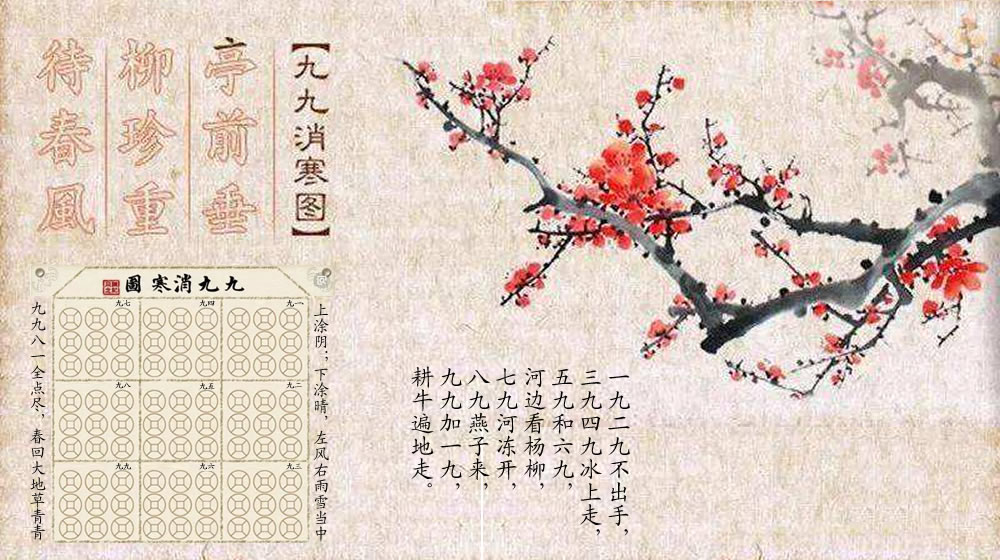 【九九消寒图】
亭前垂
柳珍重
待春風
九九消寒圖
一九
二九
三九
四九
五九
六九
七九
八九
九九
上涂阴；下涂晴，左风右雨雪当中
九九八一全点尽，春回大地草青青
一九二九不出手，
三九四九冰上走，
五九和六九，
河边看杨柳，
七九河冻开，
八九燕子来，
九九加一九，
耕牛遍地走。